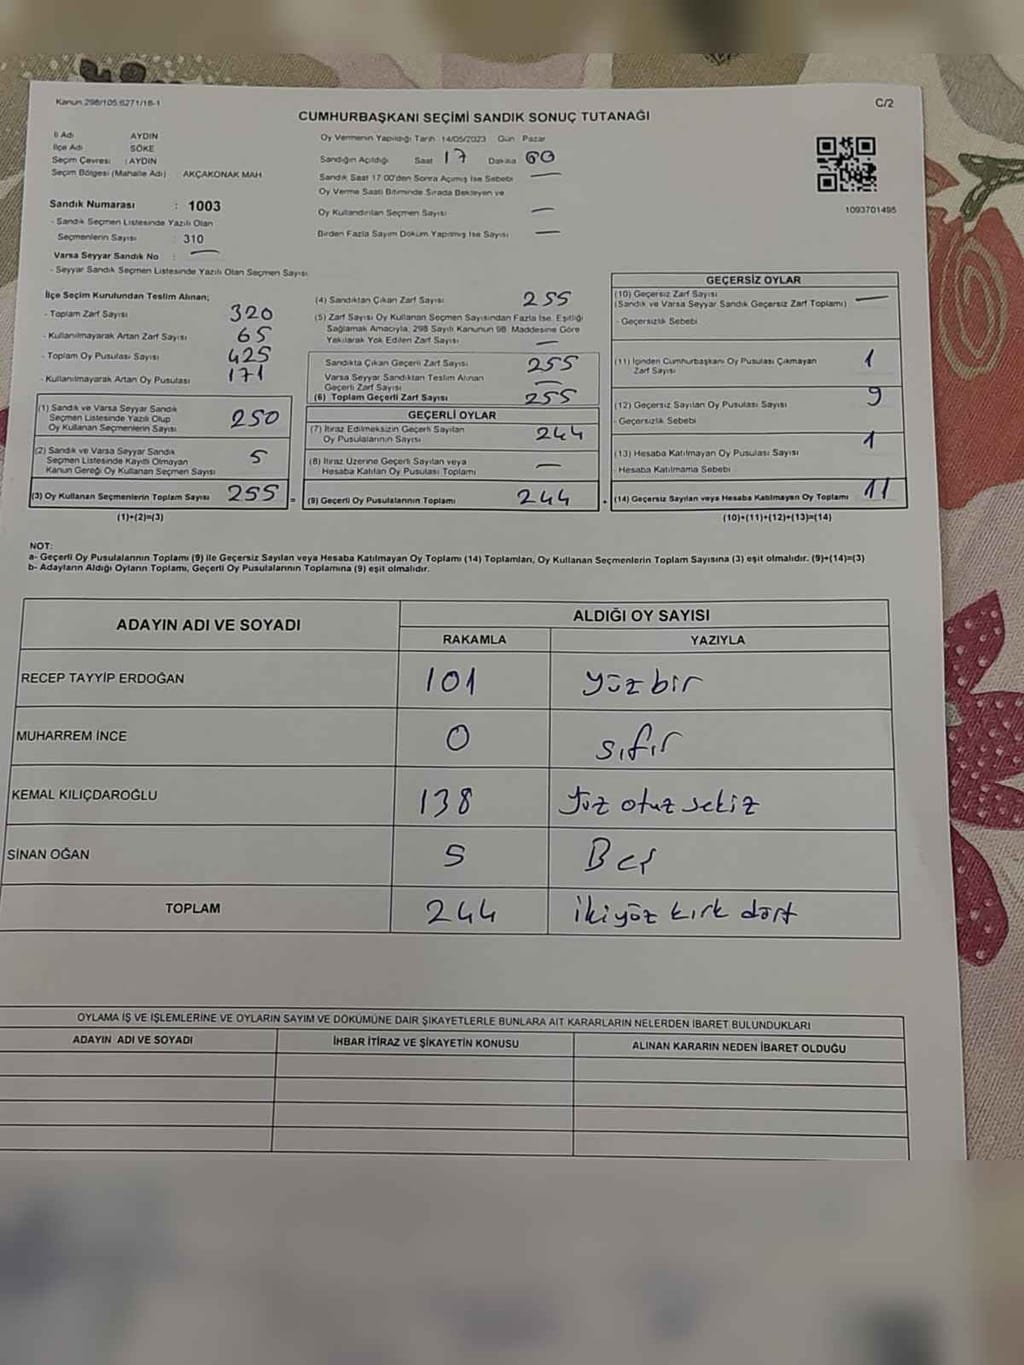 Kanun 298/105.6271/16-1
C/2
CUMHURBAŞKANI SEÇİMİ SANDIK SONUÇ TUTANAĞI
İl Adı AYDIN
İlçe Adı SÖKE
Seçim Çevresi : AYDIN
Seçim Bölgesi (Mahalle Adı) : AKÇAKONAK MAH.
Sandık Numarası : 1003
- Sandık Seçmen Listesinde Yazılı Olan
Seçmenlerin Sayısı : 310
Varsa Seyyar Sandık No : —
- Seyyar Sandık Seçmen Listesinde Yazılı Olan Seçmen Sayısı
Oy Vermenin Yapıldığı Tarih 14/05/2023 Gün Pazar
Sandığın Açıldığı Saat 17 Dakika 00
Sandık Saat 17.00'den Sonra Açımış İse Sebebi —
Oy Verme Saati Bitiminde Sırada Bekleyen ve
Oy Kullandırılan Seçmen Sayısı —
Birden Fazla Sayım Döküm Yapılmış İse Sayısı —
1093701495
İlçe Seçim Kurulundan Teslim Alınan;
- Toplam Zarf Sayısı 320
- Kullanılmayarak Artan Zarf Sayısı 65
- Toplam Oy Pusulası Sayısı 425
- Kullanılmayarak Artan Oy Pusulası 171
(1) Sandık ve Varsa Seyyar Sandık
Seçmen Listesinde Yazılı Olup
Oy Kullanan Seçmenlerin Sayısı 250
(2) Sandık ve Varsa Seyyar Sandık
Seçmen Listesinde Kayıtlı Olmayan
Kanun Gereği Oy Kullanan Seçmen Sayısı 5
(3) Oy Kullanan Seçmenlerin Toplam Sayısı 255 =
(1)+(2)=(3)
(4) Sandıktan Çıkan Zarf Sayısı 255
(5) Zarf Sayısı Oy Kullanan Seçmen Sayısından Fazla İse, Eşitliği
Sağlamak Amacıyla, 298 Sayılı Kanunun 98. Maddesine Göre
Yakılarak Yok Edilen Zarf Sayısı —
Sandıkta Çıkan Geçerli Zarf Sayısı 255
Varsa Seyyar Sandıktan Teslim Alınan
Geçerli Zarf Sayısı —
(6) Toplam Geçerli Zarf Sayısı 255
GEÇERLİ OYLAR
(7) İtiraz Edilmeksizin Geçerli Sayılan
Oy Pusulalarının Sayısı 244
(8) İtiraz Üzerine Geçerli Sayılan veya
Hesaba Katılan Oy Pusulası Toplamı —
(9) Geçerli Oy Pusulalarının Toplamı 244
GEÇERSİZ OYLAR
(10) Geçersiz Zarf Sayısı
(Sandık ve Varsa Seyyar Sandık Geçersiz Zarf Toplamı) —
- Geçersizlik Sebebi
(11) İçinden Cumhurbaşkanı Oy Pusulası Çıkmayan
Zarf Sayısı 1
(12) Geçersiz Sayılan Oy Pusulası Sayısı 9
- Geçersizlik Sebebi
(13) Hesaba Katılmayan Oy Pusulası Sayısı 1
Hesaba Katılmama Sebebi
(14) Geçersiz Sayılan veya Hesaba Katılmayan Oy Toplamı 11
(10)+(11)+(12)+(13)=(14)
NOT:
a- Geçerli Oy Pusulalarının Toplamı (9) ile Geçersiz Sayılan veya Hesaba Katılmayan Oy Toplamı (14) Toplamları, Oy Kullanan Seçmenlerin Toplam Sayısına (3) eşit olmalıdır. (9)+(14)=(3)
b- Adayların Aldığı Oyların Toplamı, Geçerli Oy Pusulalarının Toplamına (9) eşit olmalıdır.
ADAYIN ADI VE SOYADI
ALDIĞI OY SAYISI
RAKAMLA YAZIYLA
RECEP TAYYİP ERDOĞAN 101 yüzbir
MUHARREM İNCE 0 sıfır
KEMAL KILIÇDAROĞLU 138 Yüz otuz sekiz
SİNAN OĞAN 5 Beş
TOPLAM 244 ikiyüz kırk dört
OYLAMA İŞ VE İŞLEMLERİNE VE OYLARIN SAYIM VE DÖKÜMÜNE DAİR ŞİKAYETLERLE BUNLARA AİT KARARLARIN NELERDEN İBARET BULUNDUKLARI
ADAYIN ADI VE SOYADI İHBAR İTİRAZ VE ŞİKAYETİN KONUSU ALINAN KARARIN NEDEN İBARET OLDUĞU